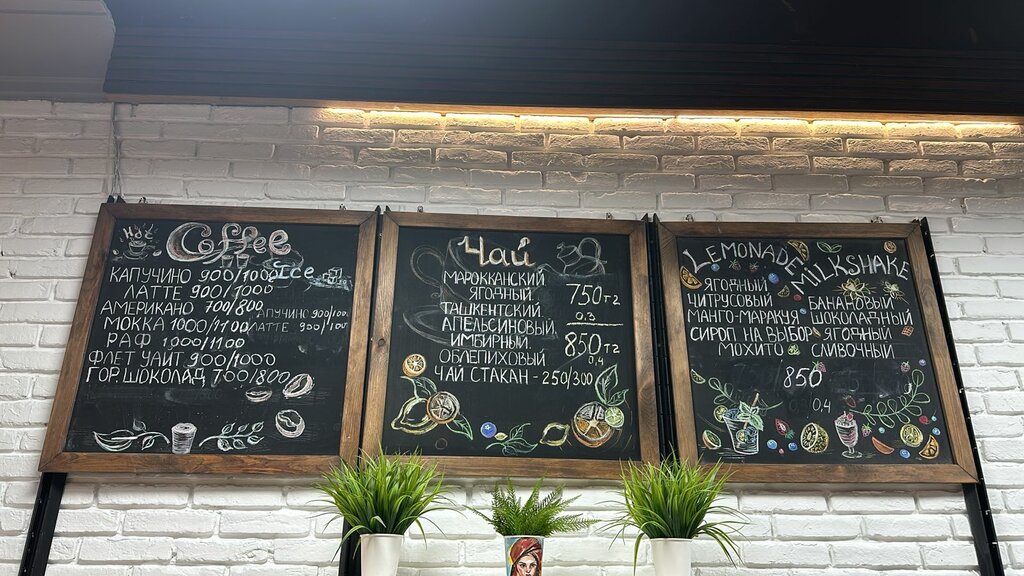 Hot
Coffee
Ice
КАПУЧИНО 900/1000
ЛАТТЕ 900/1000
АМЕРИКАНО 700/800
МОККА 1000/1100
РАФ 1000/1100
ФЛЕТ УАЙТ 900/1000
ГОР. ШОКОЛАД 700/800
АПУЧИНО 900/100
ЛАТТЕ 900/100
Чай
МАРОККАНСКИЙ
ЯГОДНЫЙ
ТАШКЕНТСКИЙ
АПЕЛЬСИНОВЫЙ
ИМБИРНЫЙ
ОБЛЕПИХОВЫЙ
ЧАЙ СТАКАН - 250/300
750тг
0.3
850тг
0,4
LEMONADE
ЯГОДНЫЙ
ЦИТРУСОВЫЙ
МАНГО-МАРАКУЯ
СИРОП НА ВЫБОР
МОХИТО
MILKSHAKE
БАНАНОВЫЙ
ШОКОЛАДНЫЙ
ЯГОДНЫЙ
СЛИВОЧНЫЙ
850
0,4